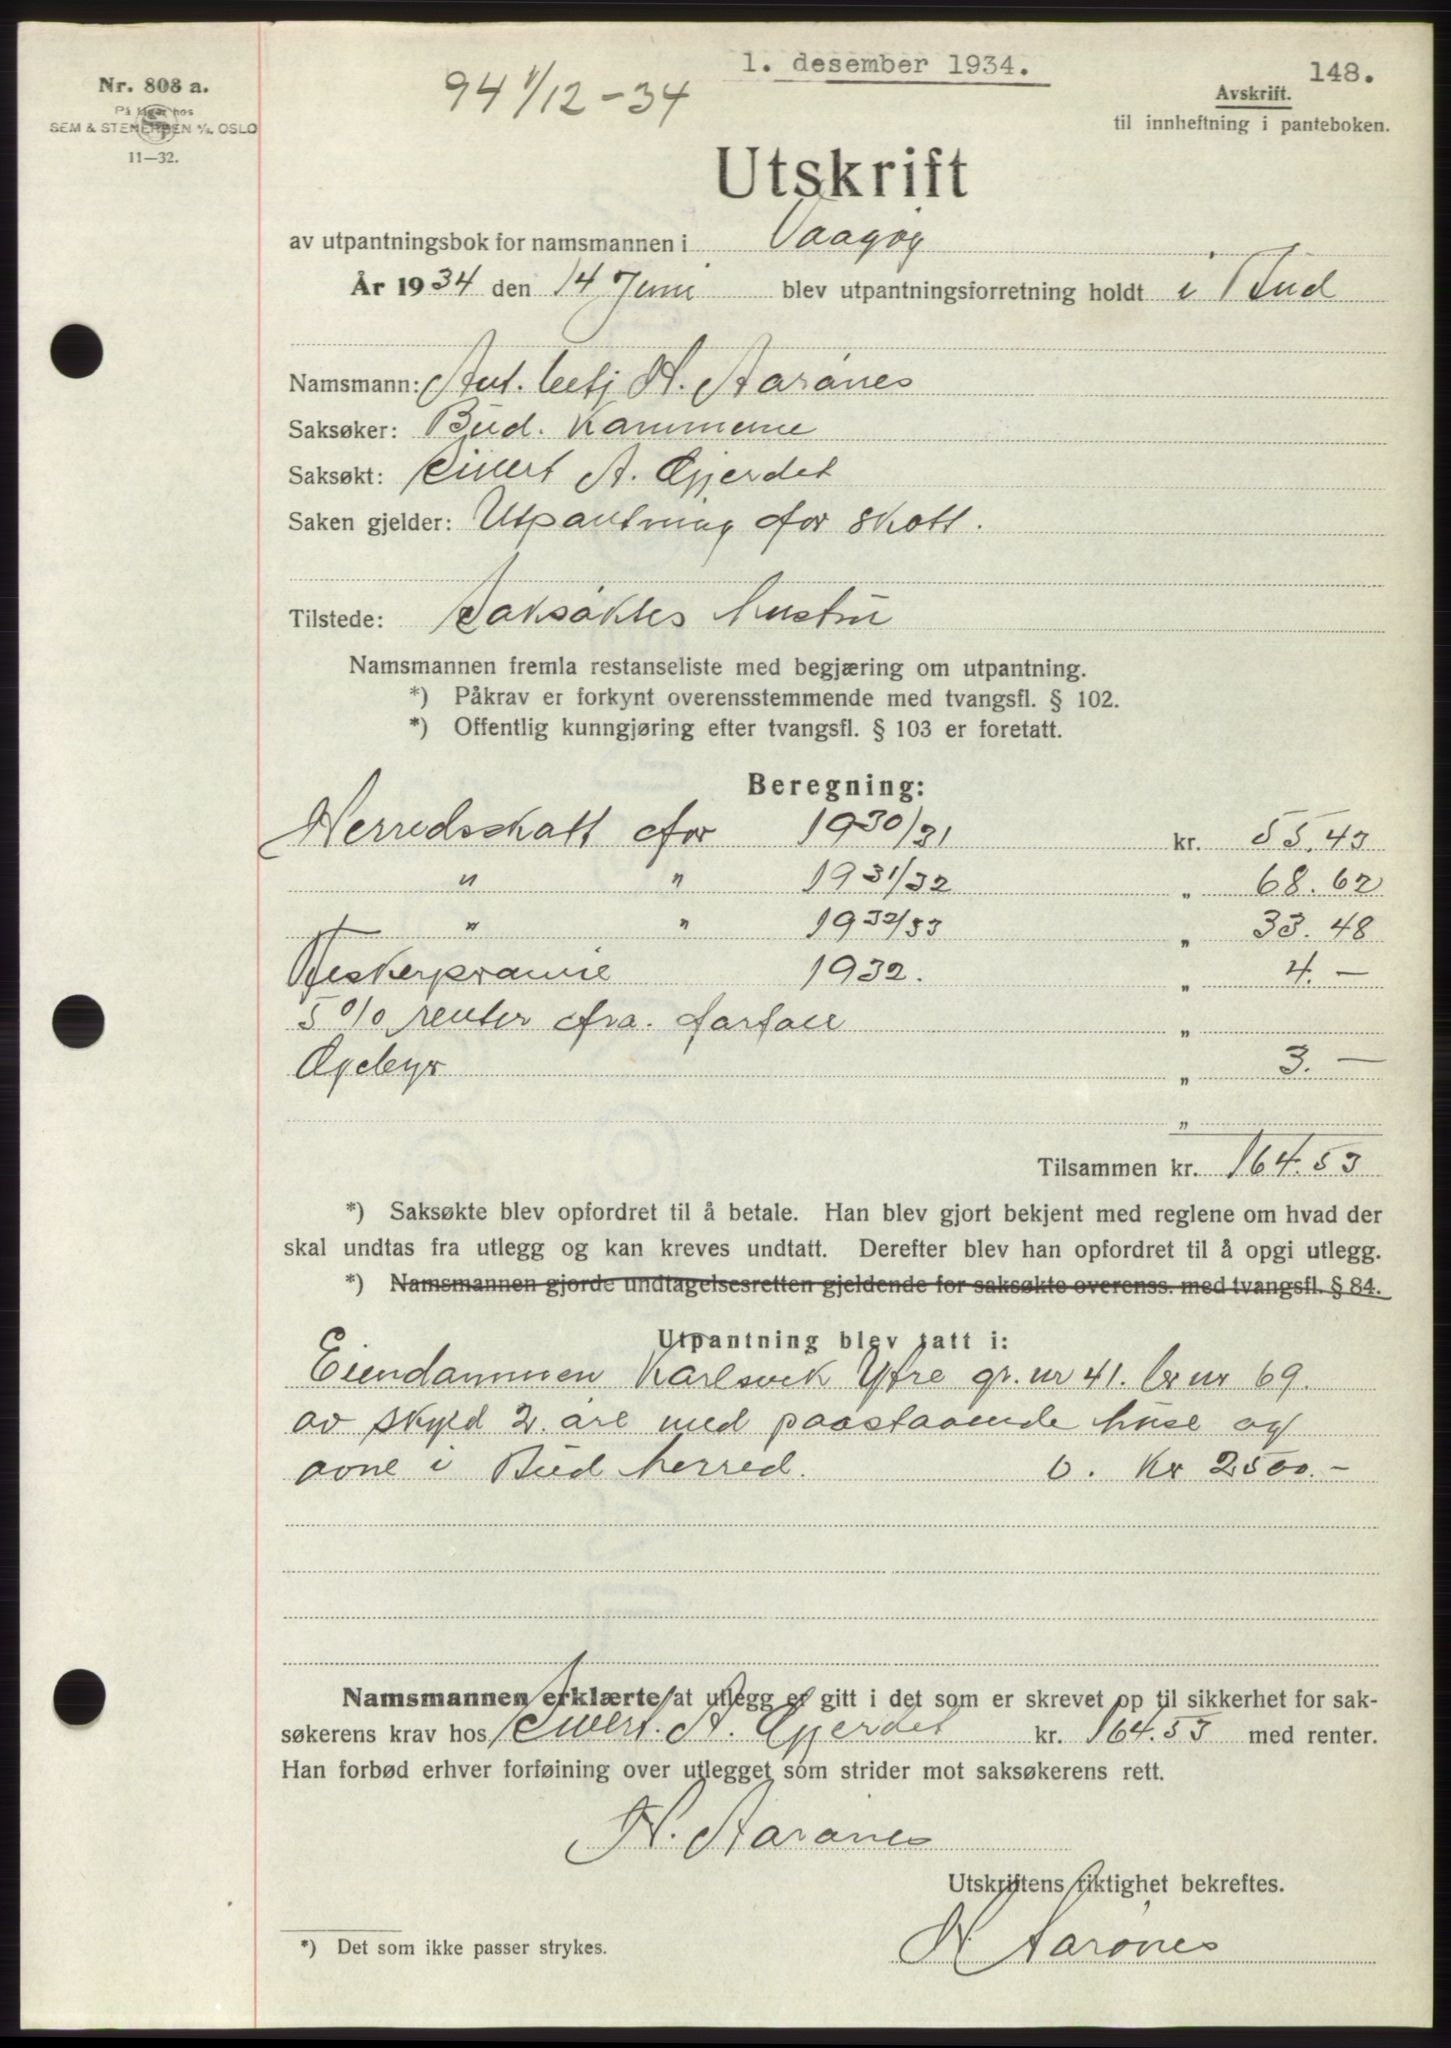 Nr. 808 a.
På lager hos
SEM & STENERSEN A/S, OSLO
11—32.
1. desember 1934.
94 1/12 - 34
148.
Avskrift.
til innheftning i panteboken.
Utskrift
av utpantningsbok for namsmannen i Vaagøy
År 1934 den 14 Juni blev utpantningsforretning holdt i Bud
Namsmann: Aut. betj H. Aarønes
Saksøker: Bud. Kommune
Saksøkt: Sivert A. Gjerdet
Saken gjelder: Utpantning for skatt.
Tilstede: Saksøktes hustru
Namsmannen fremla restanseliste med begjæring om utpantning.
*) Påkrav er forkynt overensstemmende med tvangsfl. § 102.
*) Offentlig kunngjøring efter tvangsfl. § 103 er foretatt.
Beregning:
Herredsskatt for 1930/31 kr. 55.43
" " 1931/32 " 68.62
" " 1932/33 " 33.48
Feskerpramie 1932. " 4.—
5 % renter fra. forfall "
Gebyr " 3.—
"
Tilsammen kr. 164.53
*) Saksøkte blev opfordret til å betale. Han blev gjort bekjent med reglene om hvad der
skal undtas fra utlegg og kan kreves undtatt. Derefter blev han opfordret til å opgi utlegg.
*) Namsmannen gjorde undtagelsesretten gjeldende for saksøkte overenss. med tvangsfl. § 84.
Utpantning blev tatt i:
Eiendommen Karlsvik Ytre gr. nr 41. br nr 69.
av skyld 2. øre med paastaaende huse og
ovne i Bud herred. v. Kr 2500.-
Namsmannen erklærte at utlegg er gitt i det som er skrevet op til sikkerhet for sak-
søkerens krav hos Sivert. A. Gjerdet kr. 164.53 med renter.
Han forbød erhver forføining over utlegget som strider mot saksøkerens rett.
H. Aarønes
Utskriftens riktighet bekreftes.
H Aarønes
*) Det som ikke passer strykes.